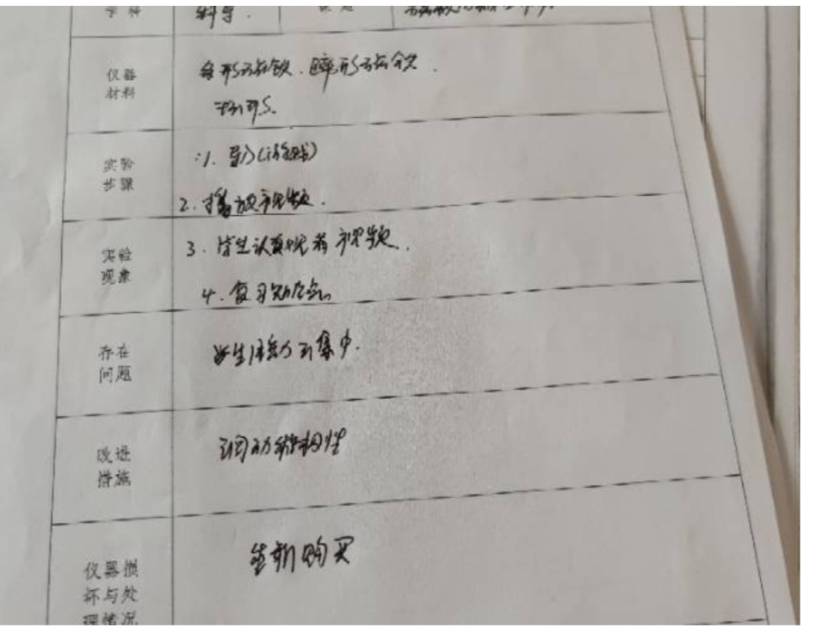 学科 科学.
仪器 条形磁铁. 蹄形磁铁.
材料 环形.
实验 1. 导入(游戏)
步骤 2. 播放视频.
实验 3. 学生认真观看视频.
现象 4. 复习知识
存在 学生注意力不集中.
问题
改进 调动积极性
措施
仪器损 重新购买
坏与处
理情况